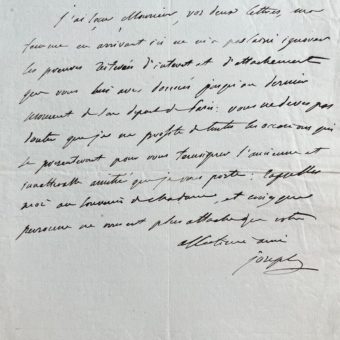 J'ai reçu Monsieur, vos deux lettres, ma
femme en arrivant ici ne m'a pas laissé ignorer
les preuves d'interet et d'attachement
que vous lui avez données jusqu'au dernier
moment de son depart de Paris: vous ne devez pas
douter que je ne profite de toutes les occasions qui
se presenteront pour vous temoigner l'ancienne et
inalterable amitié que je vous porte: rappellez
moi au souvenir de Madame, et croyez que
personne ne vous est plus attaché que votre
affectionné ami
Joseph